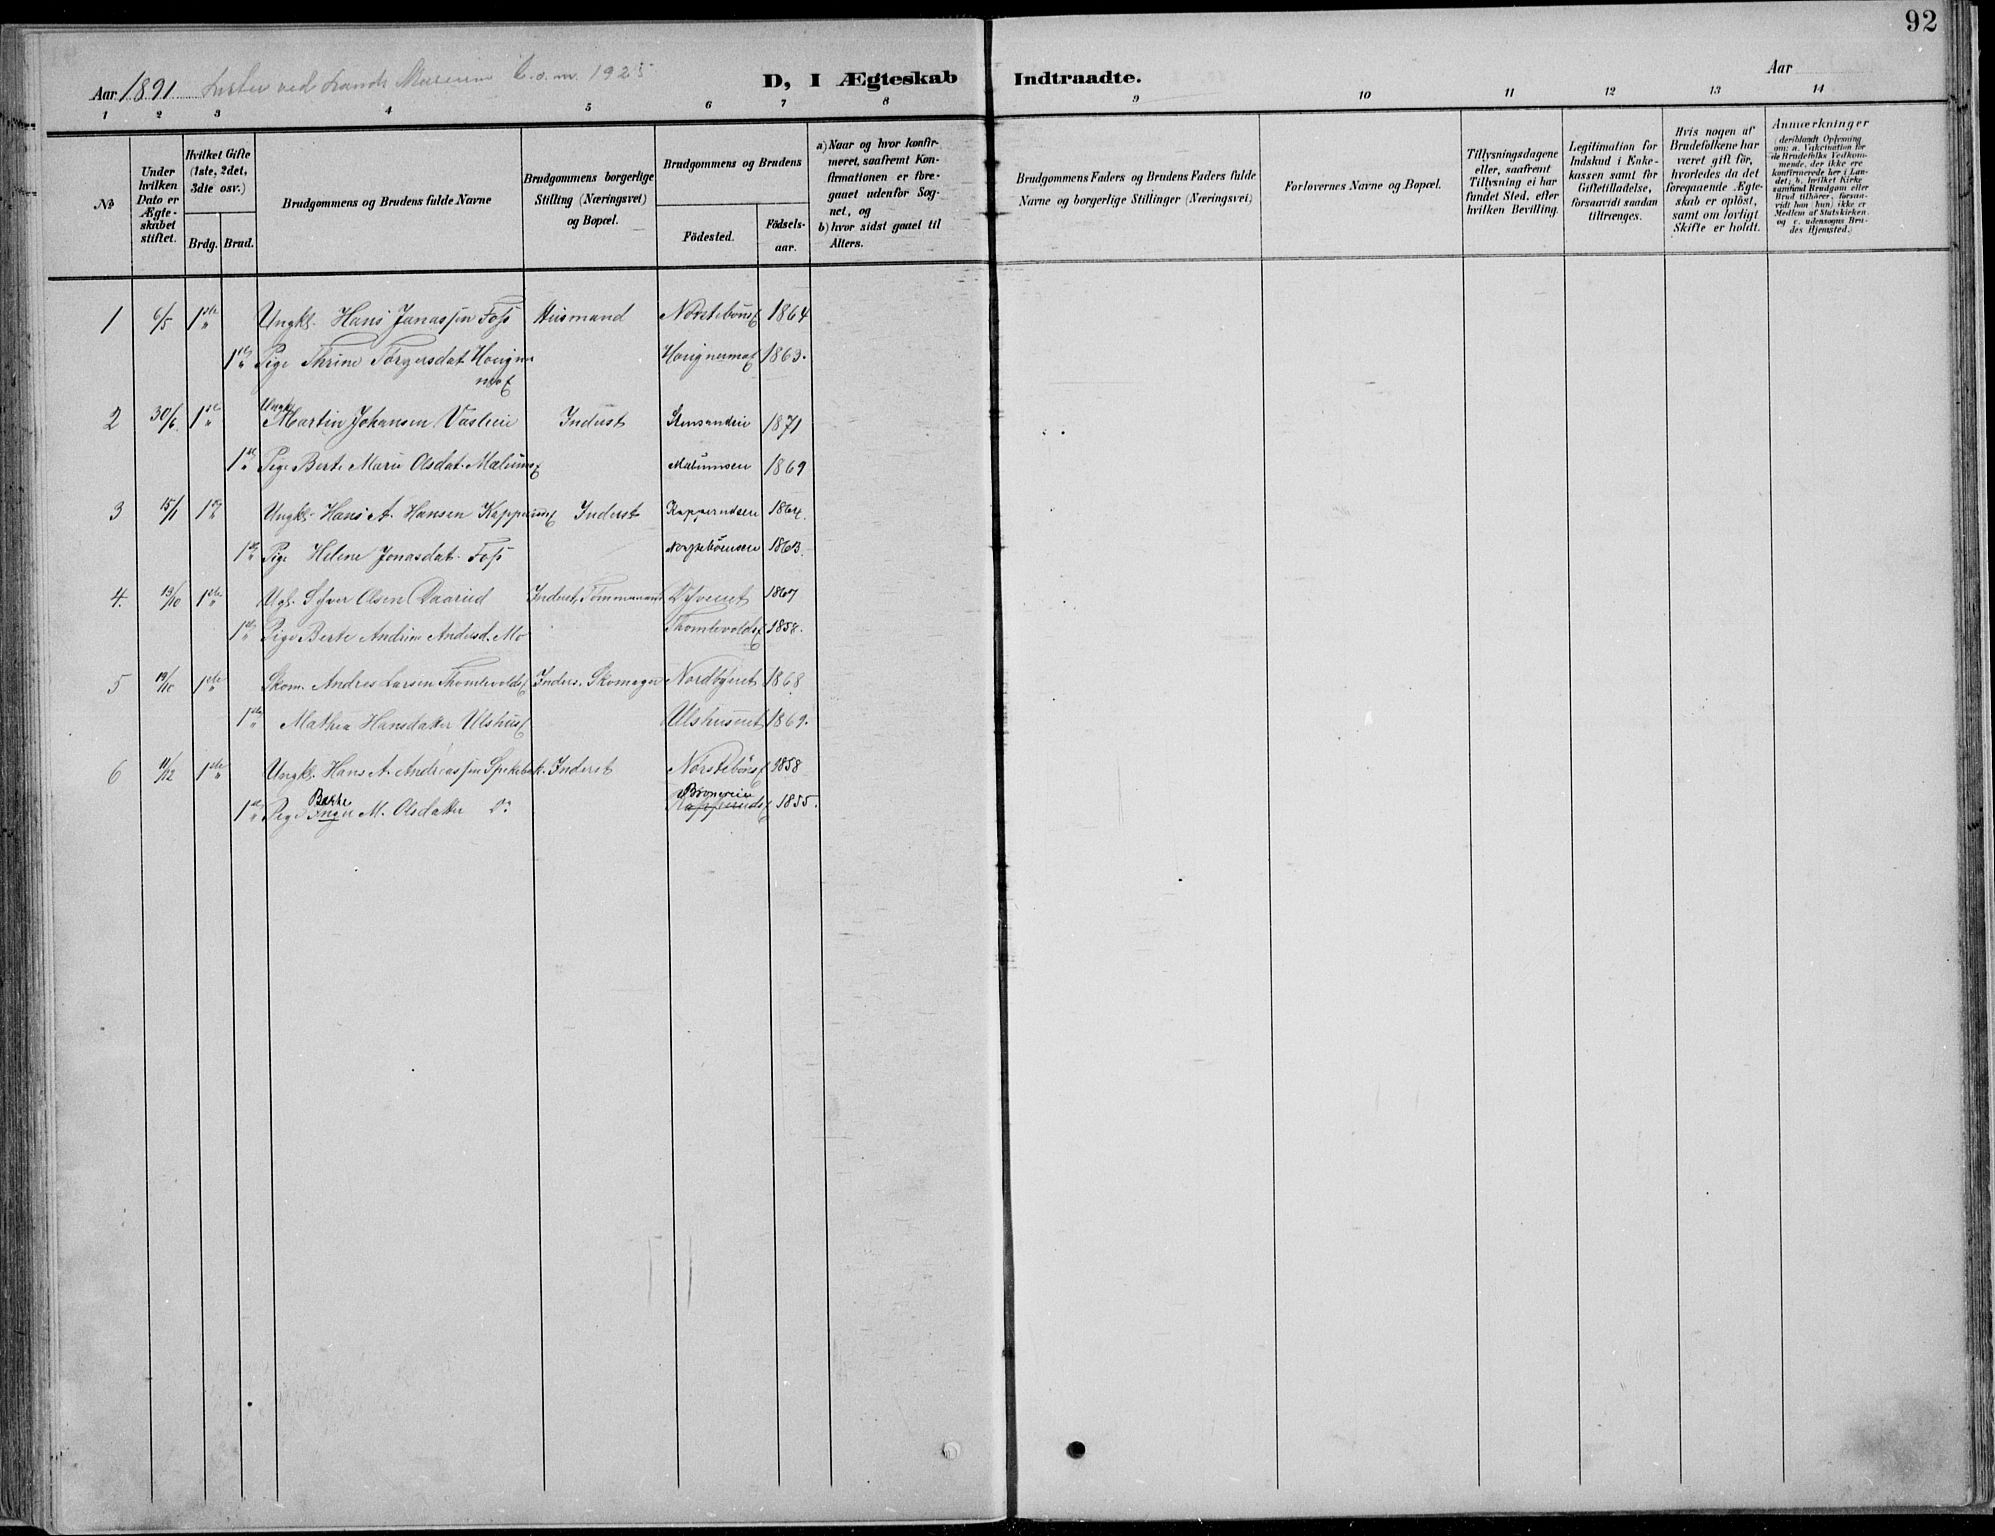 92
Aar 1891 ved Lands Museum 1925
D, I Ægteskab Indtraadte.
Aar
1 2 3 4 5 6 7 8 9 10 11 12 13 14
№
Under hvilken Dato er Ægteskabet stiftet.
Hvilket Gifte (1ste, 2det, 3dte osv.)
Brdg. Brud.
Brudgommens og Brudens fulde Navne
Brudgommens borgerlige Stilling (Næringsvei) og Bopæl.
Brudgommens og Brudens
Födested.
Födsels-aar.
a) Naar og hvor konfirmeret, saafremt Konfirmationen er foregaaet udenfor Sognet, og
b) hvor sidst gaaet til Alters.
Brudgommens Faders og Brudens Faders fulde Navne og borgerlige Stillinger (Næringsvei)
Forlovernes Navne og Bopæl.
Tillysningsdagene eller, saafremt Tillysning ei har fundet Sted, efter hvilken Bevilling.
Legitimation for Indskud i Enkekassen samt for Giftetilladelse, forsaavidt saadan tiltrænges.
Hvis nogen af Brudefolkene har været gift för, hvorledes da det foregaaende Ægteskab er oplöst, samt om lovligt Skifte er holdt.
Anmærkninger (deriblandt Oplysning om: a. Vakcination for de Brudefolks Vedkommende, der ikke ere konfirmerede her i Landet; b. hvilket Kirkesamfund Brudgom eller Brud tilhører, forsaavidt han (hun) ikke er Medlem af Statskirken og c. udensogns Brudes Hjemsted.)
1 6/5 1ste Ungkl. Hans Jonassen Foss Husmand Norstebøns 1864
1ste Pige Thrine Torgersdat. Haugnermo 1863.
2 30/6 1ste Ungk. Martin Johansen Vaslien Inderst 1871
1ste Pige Berte Marie Olsdat. Mælums Mælumsei 1869
3 15/1 1ste Ungkl. Hans A. Hansen Kapperud Inderst Kapperudsei 1864.
1ste Pige Helene Jonasdat. Foss 1863.
4. 13/10 1ste Ugl. Syver Olsen Daarud Inderst, Tømmermand 1867
1ste Pige Berte Andrine Andersd. Mo Thomlevolds 1858.
5 19/10 1ste Skom. Andres Larsen Thomlevolds Inders. Skomager Nordbyeiet 1868
1ste Mathea Hansdatter Ulshus Ulshuseiet 1869.
6 11/12 1ste Ungkl. Hans A. Andreassen Inderst Norstebøns 1858
1ste Pige Inger M. Olsdatter Do Kapperuds 1855.